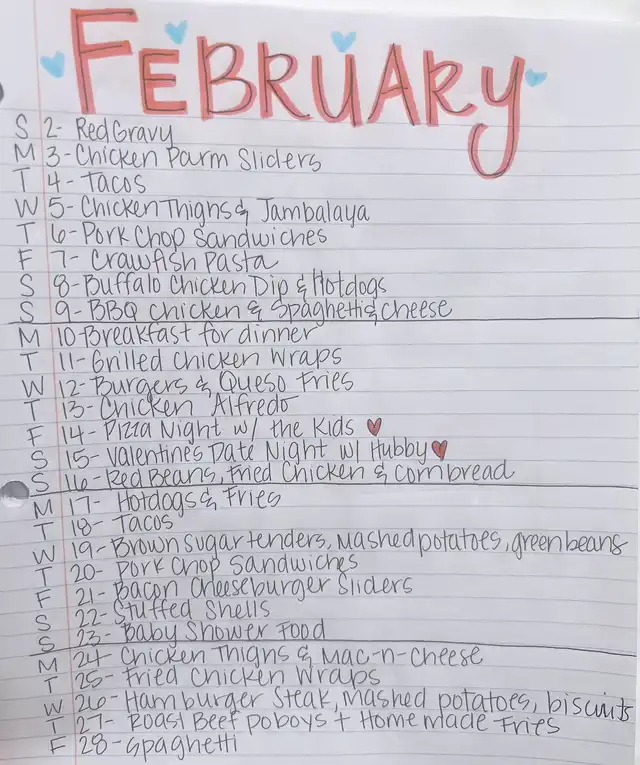 FEBRUARY
S 2- Red Gravy
M 3- Chicken Parm Sliders
T 4- Tacos
W 5- Chicken Thighs & Jambalaya
T 6- Pork Chop Sandwiches
F 7- Crawfish Pasta
S 8- Buffalo Chicken Dip & Hotdogs
S 9- BBQ Chicken & Spaghetti & Cheese
M 10 Breakfast for dinner
T 11- Grilled Chicken Wraps
W 12- Burgers & Queso Fries
T 13- Chicken Alfredo
F 14- Pizza Night w/ the Kids ♥
S 15- Valentine's Date Night w/ Hubby ♥
S 16- Red Beans, Fried Chicken & Cornbread
M 17- Hotdogs & Fries
T 18- Tacos
W 19- Brown sugar tenders, mashed potatoes, green beans
T 20- Pork Chop Sandwiches
F 21- Bacon Cheeseburger Sliders
S 22- Stuffed Shells
S 23- Baby Shower Food
M 24- Chicken Thighs & Mac-n-Cheese
T 25- Fried Chicken Wraps
W 26- Hamburger Steak, mashed potatoes, biscuits
T 27- Roast Beef Poboys + Homemade Fries
F 28- Spaghetti